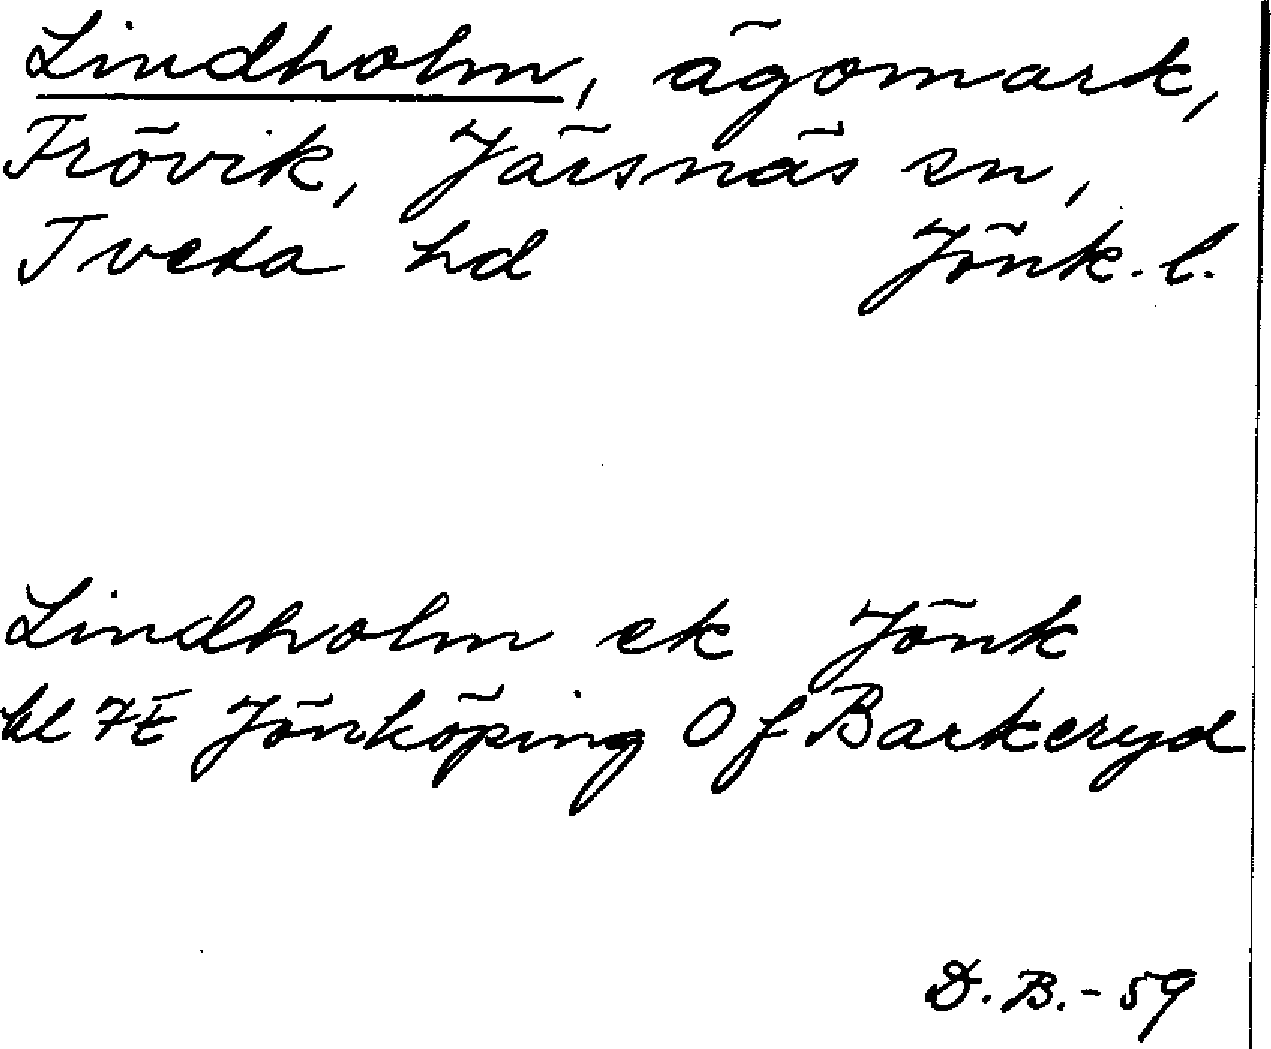 Lindholm, ägomark,
Frövik, Järsnäs sn,
Tveta hd Jönk. l.
Lindholm ek Jönk
bl 7E Jönköping O f Barkeryd
D. B. - 59